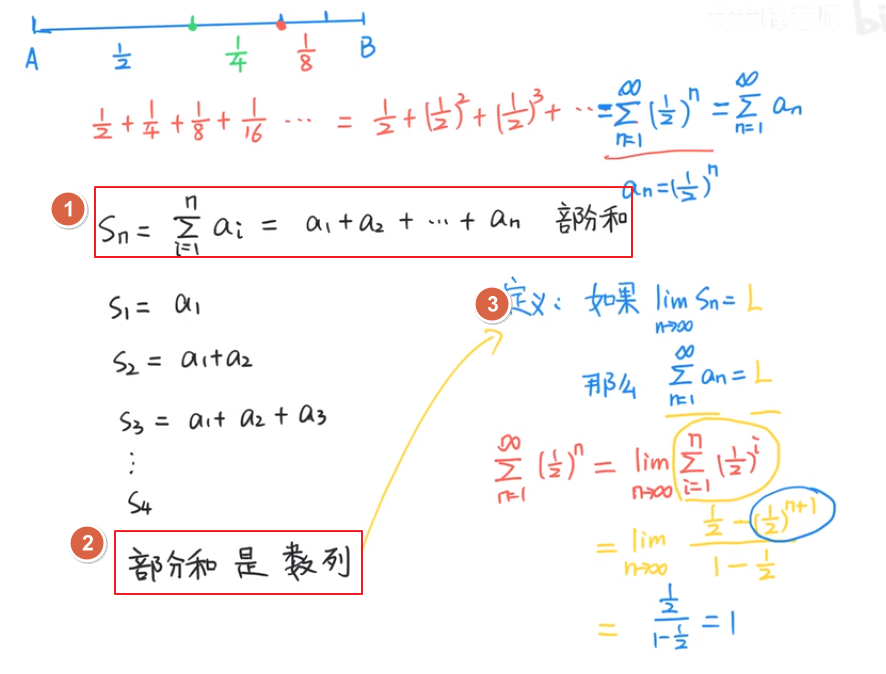 A 1/2 1/4 1/8 B
1/2 + 1/4 + 1/8 + 1/16 ⋯ = 1/2 + (1/2)² + (1/2)³ + ⋯ = ∑_{n=1}^{∞} (1/2)^n = ∑_{n=1}^{∞} a_n
a_n = (1/2)^n
1 S_n = ∑_{i=1}^{n} a_i = a_1 + a_2 + ⋯ + a_n 部阶和
S_1 = a_1
S_2 = a_1 + a_2
S_3 = a_1 + a_2 + a_3
⋮
S_4
2 部分和 是 数列
3 定义: 如果 lim_{n→∞} S_n = L
那么 ∑_{n=1}^{∞} a_n = L
∑_{n=1}^{∞} (1/2)^n = lim_{n→∞} ∑_{i=1}^{n} (1/2)^i
= lim_{n→∞} (1/2 - (1/2)^{n+1}) / (1 - 1/2)
= (1/2) / (1 - 1/2) = 1